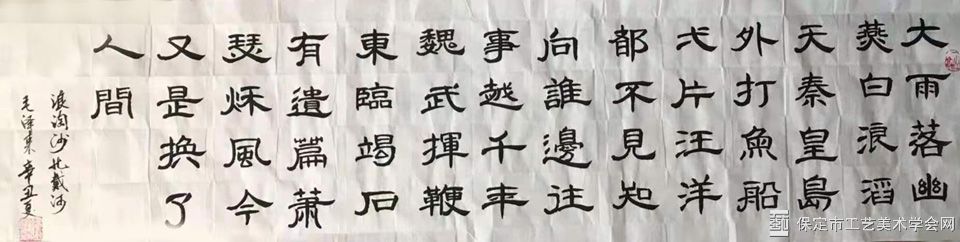 大雨落幽
燕白浪滔
天秦皇島
外打魚船
弌片汪洋
都不見知
向誰邊往
事越千年
魏武揮鞭
東臨碣石
有遺篇蕭
瑟秋風今
又是换了
人間
浪淘沙北戴河
毛泽東 辛丑夏
保定市工艺美术学会网